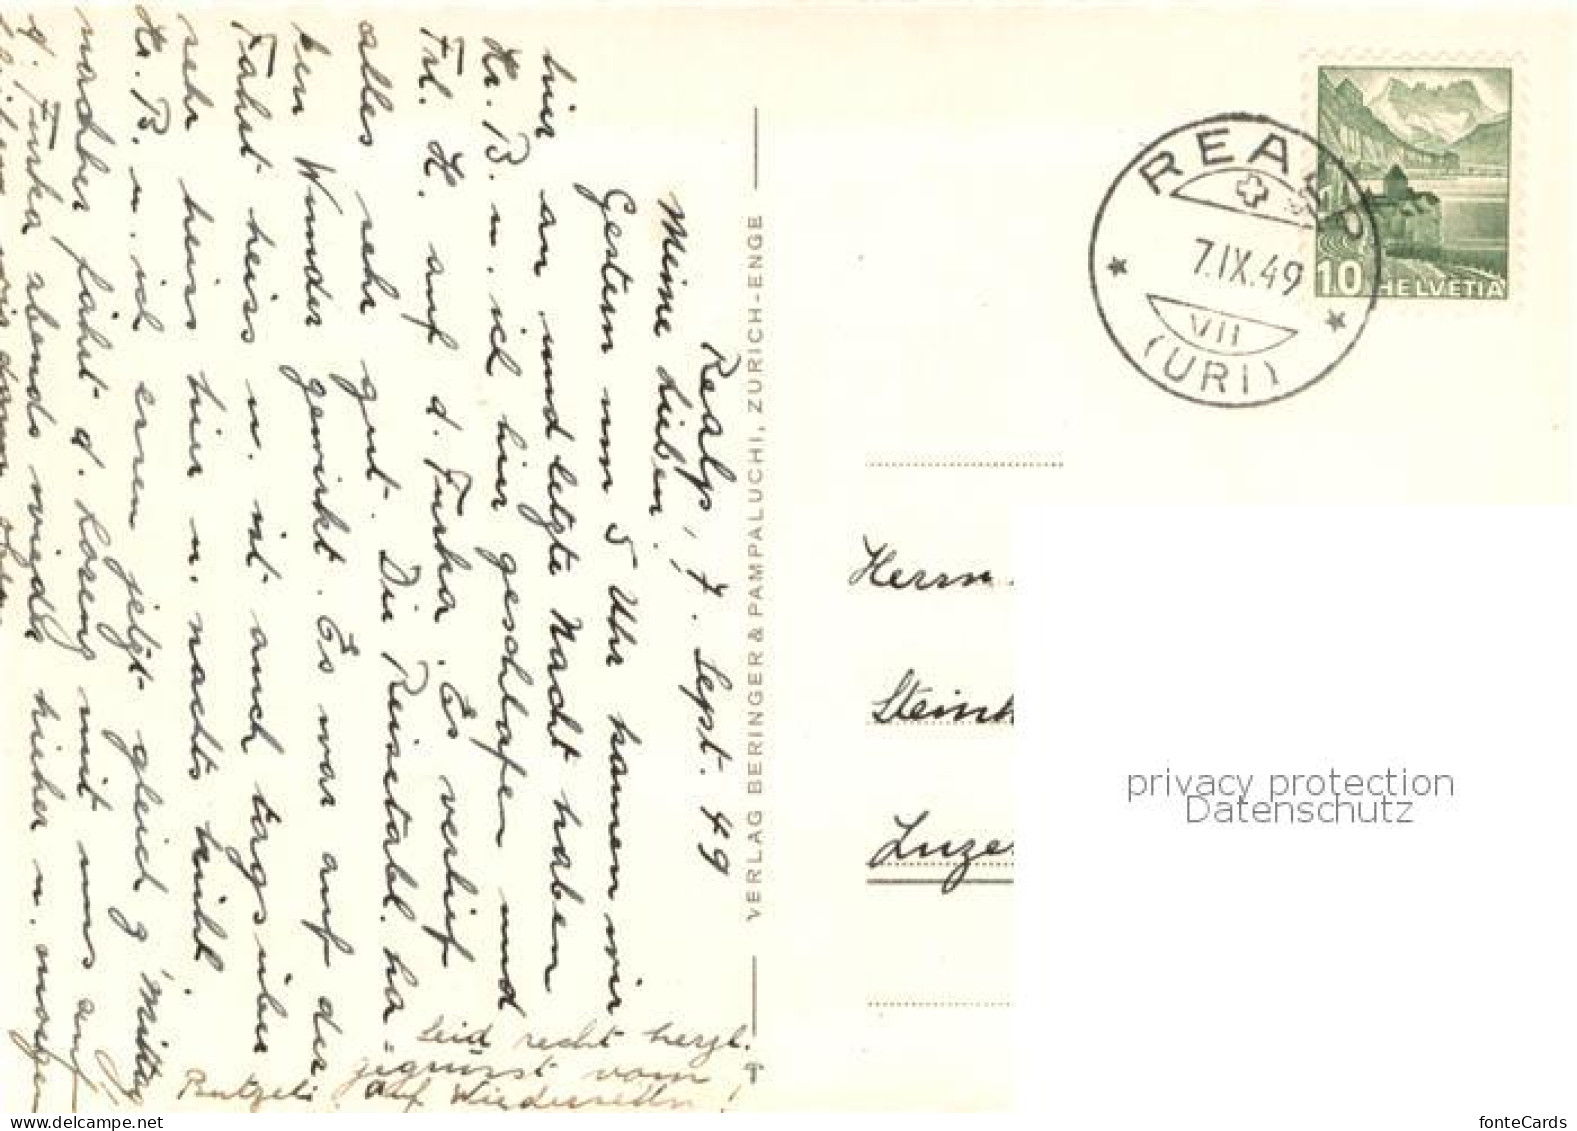 Realp, 7. Sept. 49
Meine Lieben!
Gestern um 5 Uhr kamen wir
hier an und letzte Nacht haben
Hr. B. u. ich hier geschlafen und
Frl. H. auf d. Furka. Es verlief
alles sehr gut. Die Reisetabl. ha=
ben Wunder gewirkt. Es war auf der
Fahrt heiss u. ist auch tagsüber
sehr heiss hier u. nachts kühl.
Hr. B. u. ich essen jetzt gleich z' Mittag
nachher fährt d. mit uns auf
d. Furka abends wieder hieher u. morgen
Seid recht herzl.
gegrüsst vom
Auf Wiedersehn!
VERLAG BERINGER & PAMPALUCHI, ZURICH-ENGE
REALP
7.IX.49
VII
(URI)
10 HELVETIA
Herrn
Steinh
Luze
privacy protection
Datenschutz
www.delcampe.net
fonteCards